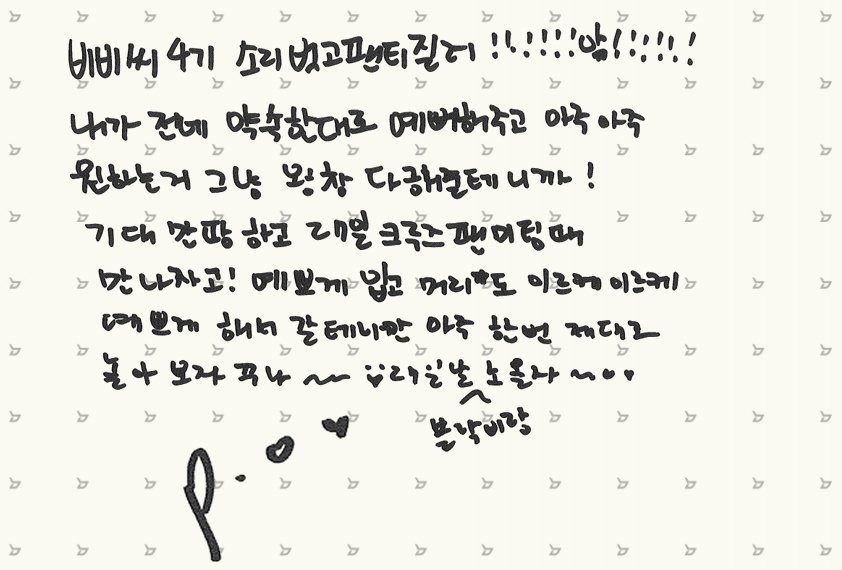 비비씨 4기 소리벗고팬티질러 !!!!!!!암!!!!!!
내가 전에 약속한대로 예뻐해주고 아주 아주
원하는거 그냥 왕창 다해줄테니까!
기대 만땅 하고 내일 크루즈 팬미팅때
만나자고! 예쁘게 입고 머리도 이르케 이르케
예쁘게 해서 갈테니깐 아주 한번 제대로
놀아 보자 꾸나 ~~ 내일 날 노올자 ~
블락비랑
P.O